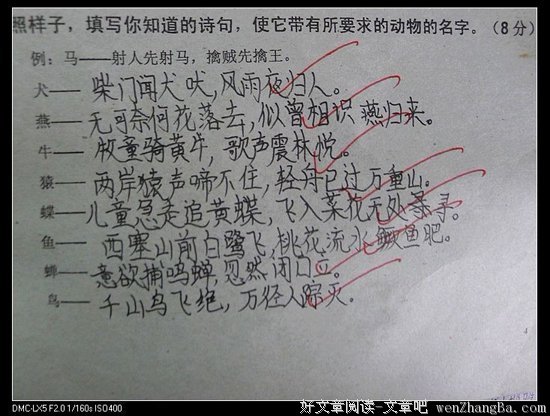 照样子，填写你知道的诗句，使它带有所要求的动物的名字。（8分）
例：马——射人先射马，擒贼先擒王。
犬——柴门闻犬吠，风雨夜归人。
燕——无可奈何花落去，似曾相识燕归来。
牛——牧童骑黄牛，歌声震林悦。
猿——两岸猿声啼不住，轻舟已过万重山。
蝶——儿童急走追黄蝶，飞入菜花无处寻。
鱼——西塞山前白鹭飞，桃花流水鳜鱼肥。
蝉——意欲捕鸣蝉，忽然闭口立。
鸟——千山鸟飞绝，万径人踪灭。
DMC-LX5 F2.0 1/160s ISO400
好文章阅读-文章吧 wenZhangBa.com